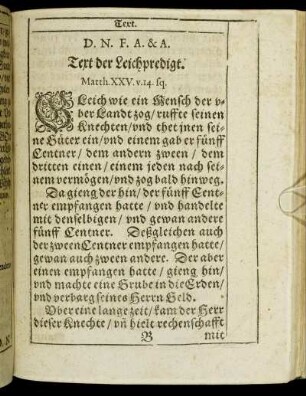 Text.
D. N. F. A. & A.
Text der Leichpredigt.
Matth. XXV. v. 14. sq.
GLeich wie ein Mensch der v-
ber Landt zog / ruffte seinen
Knechten / vnd thet jnen sei-
ne Güter ein / vnd einem gab er fünff
Centner / dem andern zween / dem
dritten einen / einem jeden nach sei-
nem vermögen / vnd zog bald hinweg.
Da gieng der hin / der fünff Cent-
ner empfangen hatte / vnd handelte
mit denselbigen / vnd gewan andere
fünff Centner. Deßgleichen auch
der zween Centner empfangen hatte /
gewan auch zween andere. Der aber
einen empfangen hatte / gieng hin /
vnd machte eine Grube in die Erden /
vnd verbarg seines Herrn Geld.
Vber eine lange zeit / kam der Herr
dieser Knechte / vñ hielt rechenschafft
B mit